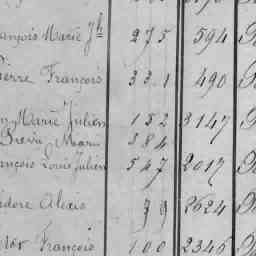 ançois Marie Jh 275 594
ierre François 331 490
Marie Julien 152 3147
Marie 384
ançois Louis Julien 547 2017
idore Alexis 79 2624
François 100 2346